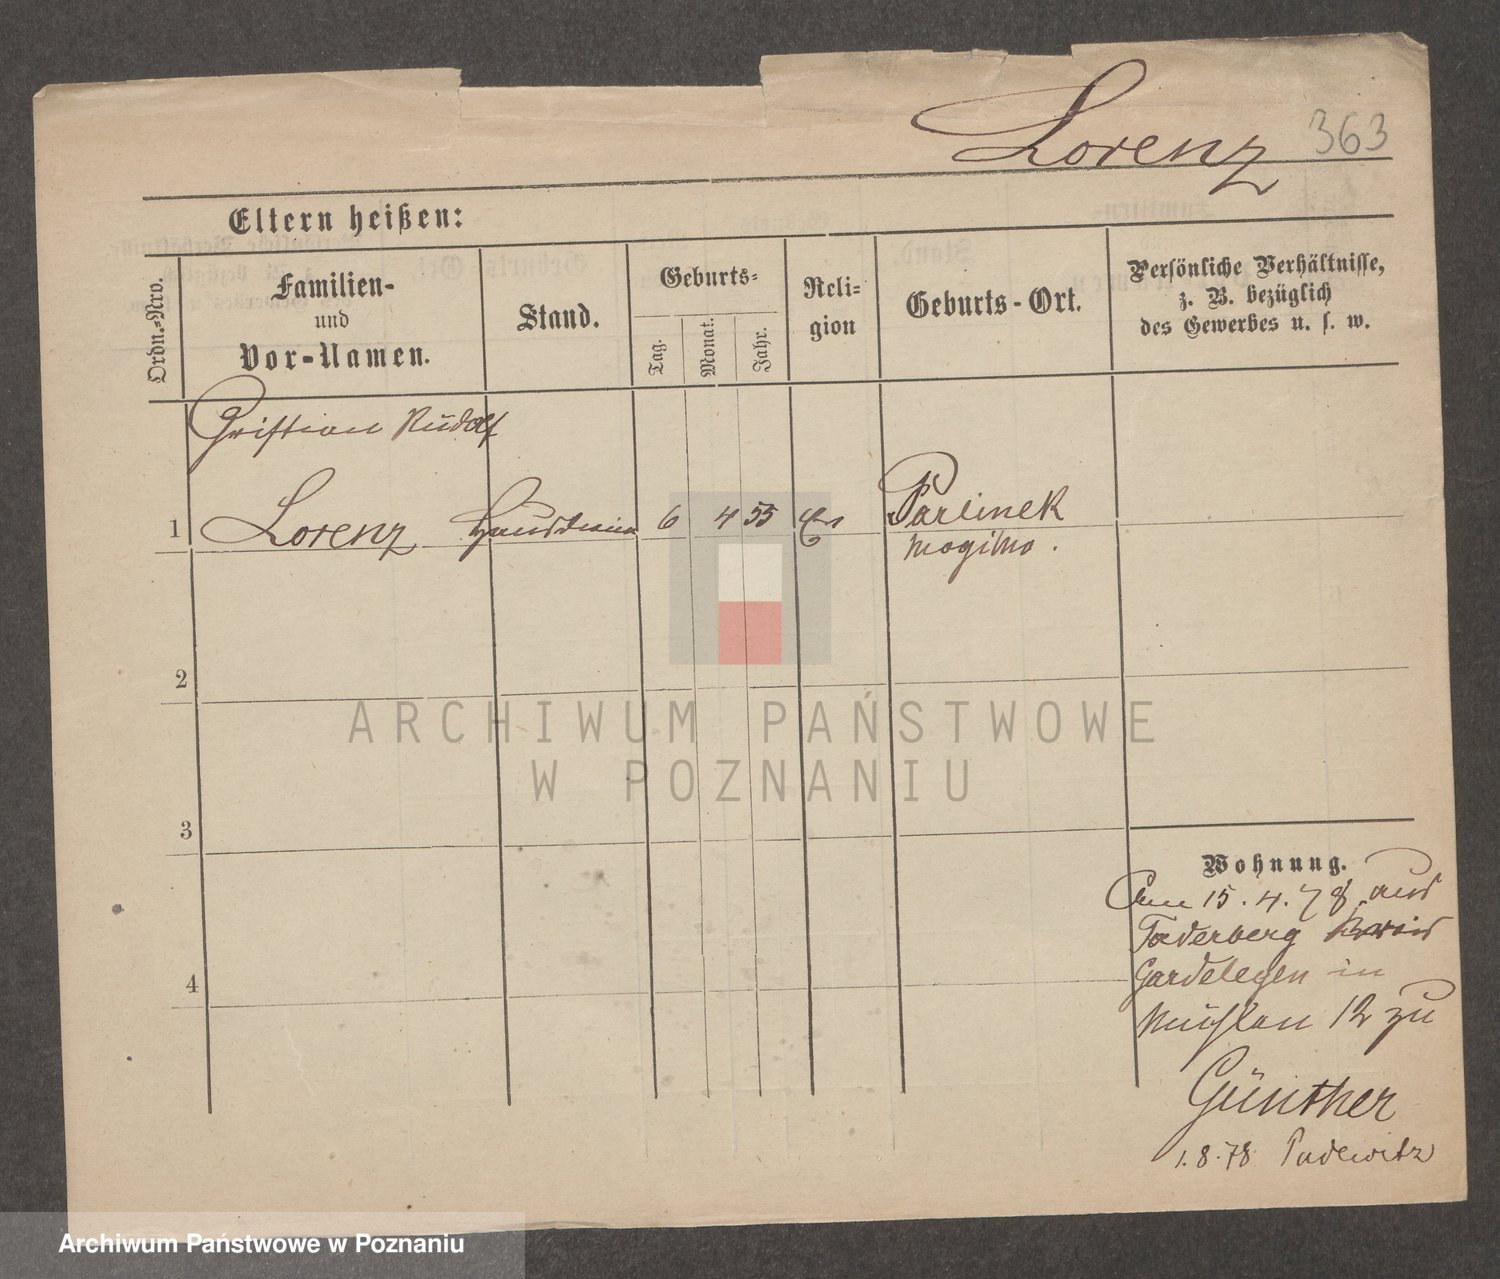 Lorenz 363
Eltern heißen:
Ordn.-Nro.
Familien-
und
Vor-Namen.
Stand.
Geburts-
Tag.
Monat.
Jahr.
Reli-
gion
Geburts-Ort.
Persönliche Verhältnisse,
z. B. bezüglich
des Gewerbes u. s. w.
Rudolf
1 Lorenz 6 4 55 Parlinek
Mogilno.
2
ARCHIWUM PAŃSTWOWE
W POZNANIU
3
Wohnung.
Am 15.4.78 aus
Kreis
4
Gardelegen in
12 zu
Günther
1.8.78 Pudewitz
Archiwum Państwowe w Poznaniu